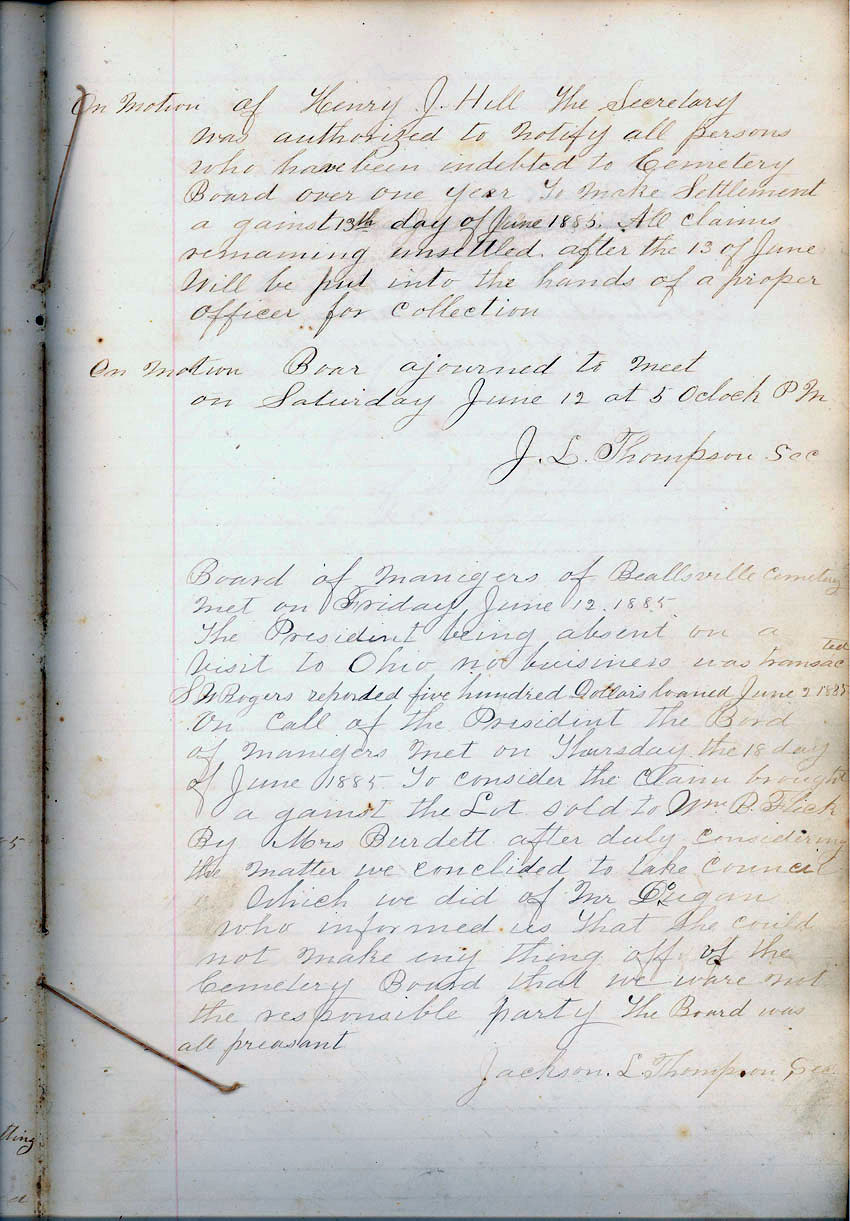 On Motion of Henry J. Hill the Secretary
was authorized to notify all persons
who have been indebted to Cemetery
Board over one year To make Settlement
a gainst 13th day of June 1885. All claims
remaining unsettled after the 13 of June
Will be put into the hands of a proper
officer for collection
On Motion Boar ajourned to meet
on Saturday June 12 at 5 Oclock P M
J. L. Thompson Sec
Board of Manigers of Beallsville Cemetery
met on Friday June 12. 1885
The President being absent on a
visit to Ohio no buisiness was transac
ted
Rogers reported five hundred Dollars loaned June 2 1885
On Call of the President the Bord
of Manigers Met on Thursday the 18 day
of June 1885 To consider the Claim brought
a gainst the Lot sold to Wm B. Flick
By Mrs Burdett after duly considering
the matter we conclided to take Council
Which we did of Mr
who informed us that she could
not make eny thing off of the
Cemetery Board that we ware not
the responsible party The Board was
all preasant
Jackson. L. Thompson, Sec.
85
tting
d